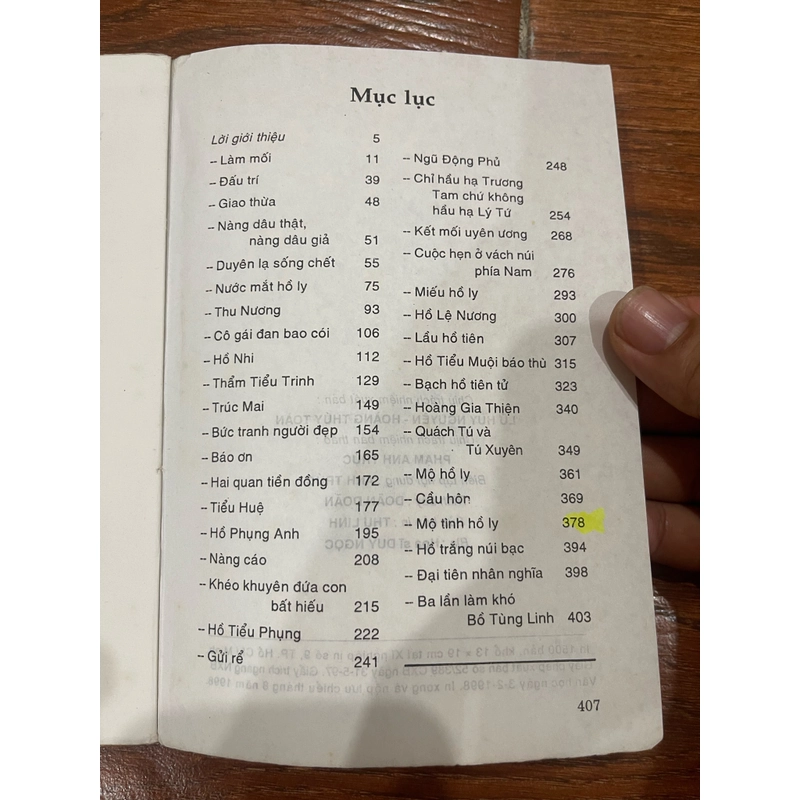 Mục lục
Lời giới thiệu 5
-- Làm mối 11
-- Đấu trí 39
-- Giao thừa 48
-- Nàng dâu thật,
nàng dâu giả 51
-- Duyên lạ sống chết 55
-- Nước mắt hồ ly 75
-- Thu Nương 93
-- Cô gái đan bao cói 106
-- Hồ Nhi 112
-- Thẩm Tiểu Trinh 129
-- Trúc Mai 149
-- Bức tranh người đẹp 154
-- Báo ơn 165
-- Hai quan tiền đồng 172
-- Tiểu Huệ 177
-- Hồ Phụng Anh 195
-- Nàng cáo 208
-- Khéo khuyên đứa con
bất hiếu 215
-- Hồ Tiểu Phụng 222
-- Gửi rể 241
-- Ngũ Động Phủ 248
-- Chỉ hầu hạ Trương
Tam chứ không
hầu hạ Lý Tứ 254
-- Kết mối uyên ương 268
-- Cuộc hẹn ở vách núi
phía Nam 276
-- Miếu hồ ly 293
-- Hồ Lệ Nương 300
-- Lầu hồ tiên 307
-- Hồ Tiểu Muội báo thù 315
-- Bạch hồ tiên tử 323
-- Hoàng Gia Thiện 340
-- Quách Tú và
Tú Xuyên 349
-- Mộ hồ ly 361
-- Cầu hôn 369
-- Mộ tình hồ ly 378
-- Hồ trắng núi bạc 394
-- Đại tiên nhân nghĩa 398
-- Ba lần làm khó
Bồ Tùng Linh 403
407